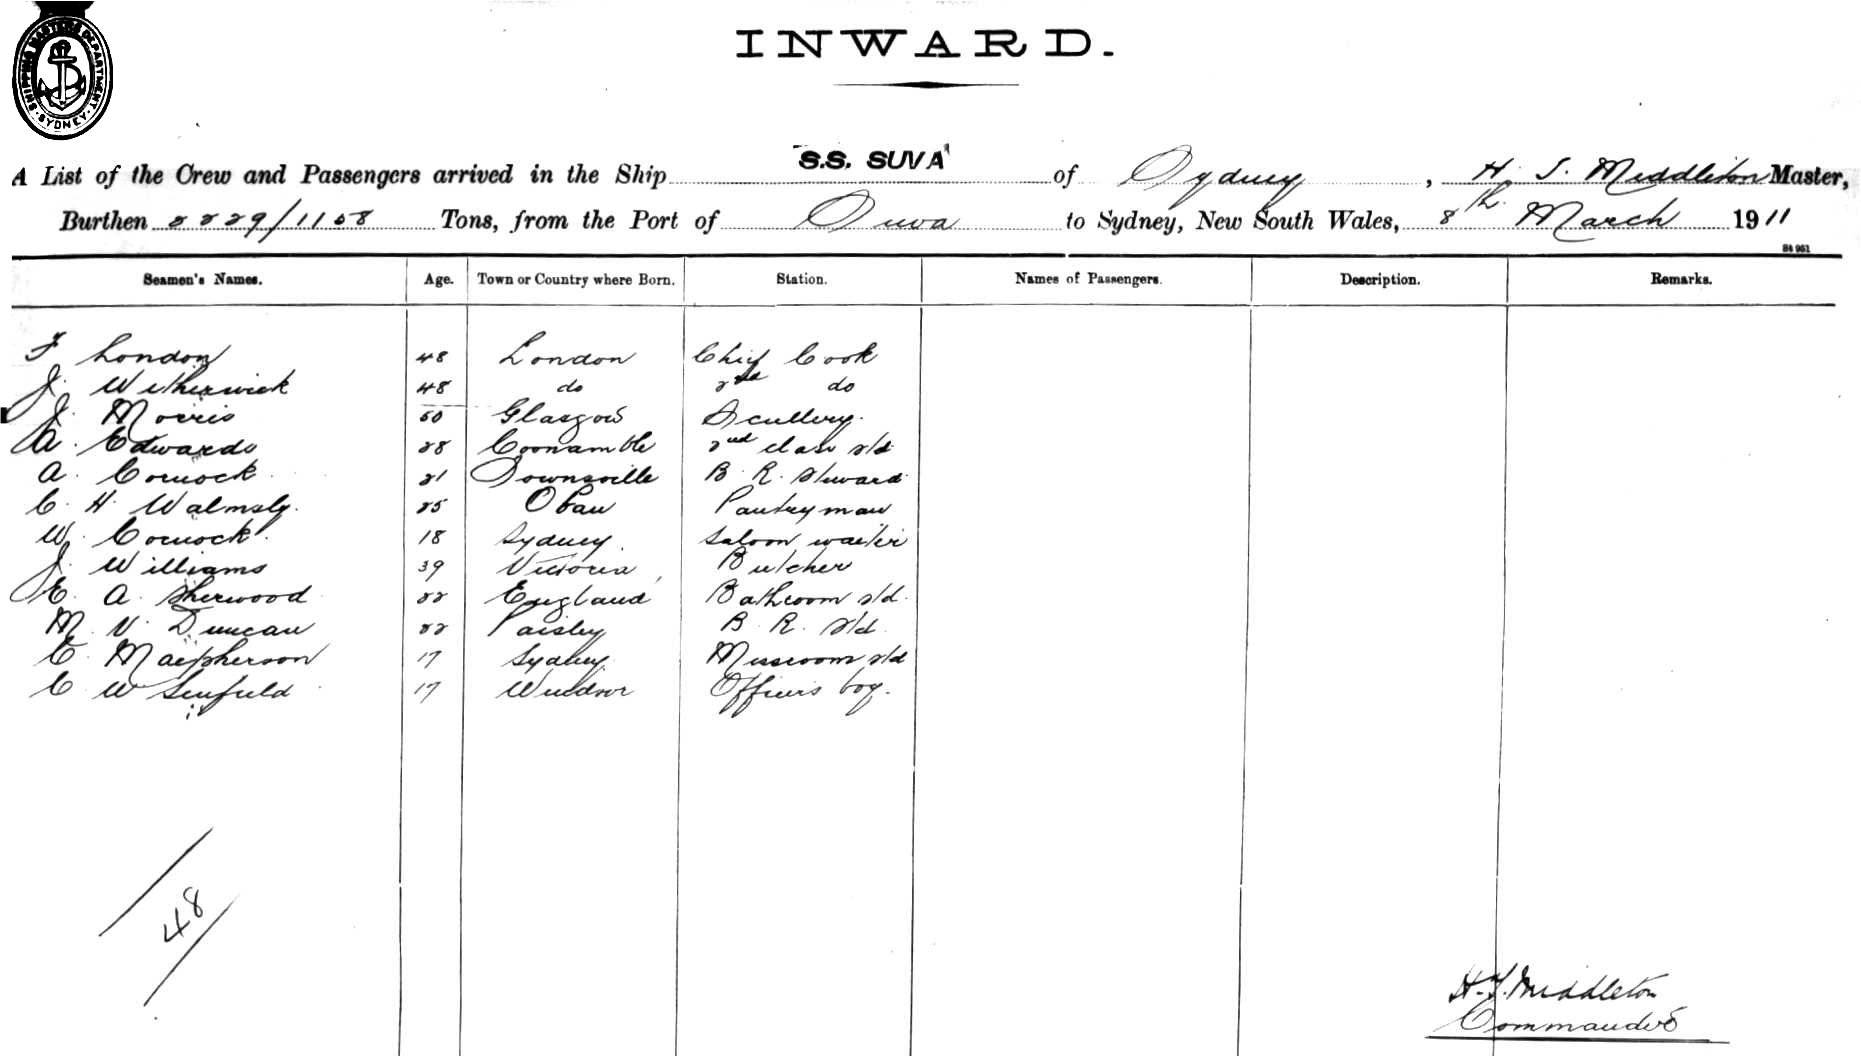 SHIPPING MASTERS DEPARTMENT · SYDNEY ·
INWARD.
A List of the Crew and Passengers arrived in the Ship S.S. SUVA of Sydney, H. T. Middleton Master,
Burthen 2229/1158 Tons, from the Port of Suva to Sydney, New South Wales, 8th March 1911
St 951
Seamen's Names. Age. Town or Country where Born. Station. Names of Passengers. Description. Remarks.
F London 48 London Chief Cook
J. Witherwick 48 do 2nd do
J. Morris 50 Glasgow Scullery.
A. Edwards 28 Coonamble 2nd class s/d
A. Cornock 21 Townsville B. R. Steward
C. H. Walmsly. 25 Oban Pantryman
W. Cornock 18 Sydney. Saloon waiter
J. Williams 39 Victoria Butcher
E. A. Sherwood 22 England Bathroom s/d.
M. V. Duncan 22 Paisley B. R. s/d.
C. Macpherson 17 Sydney. Messroom s/d
C W 17 Windsor Officers boy.
48
H. T. Middleton
Commander